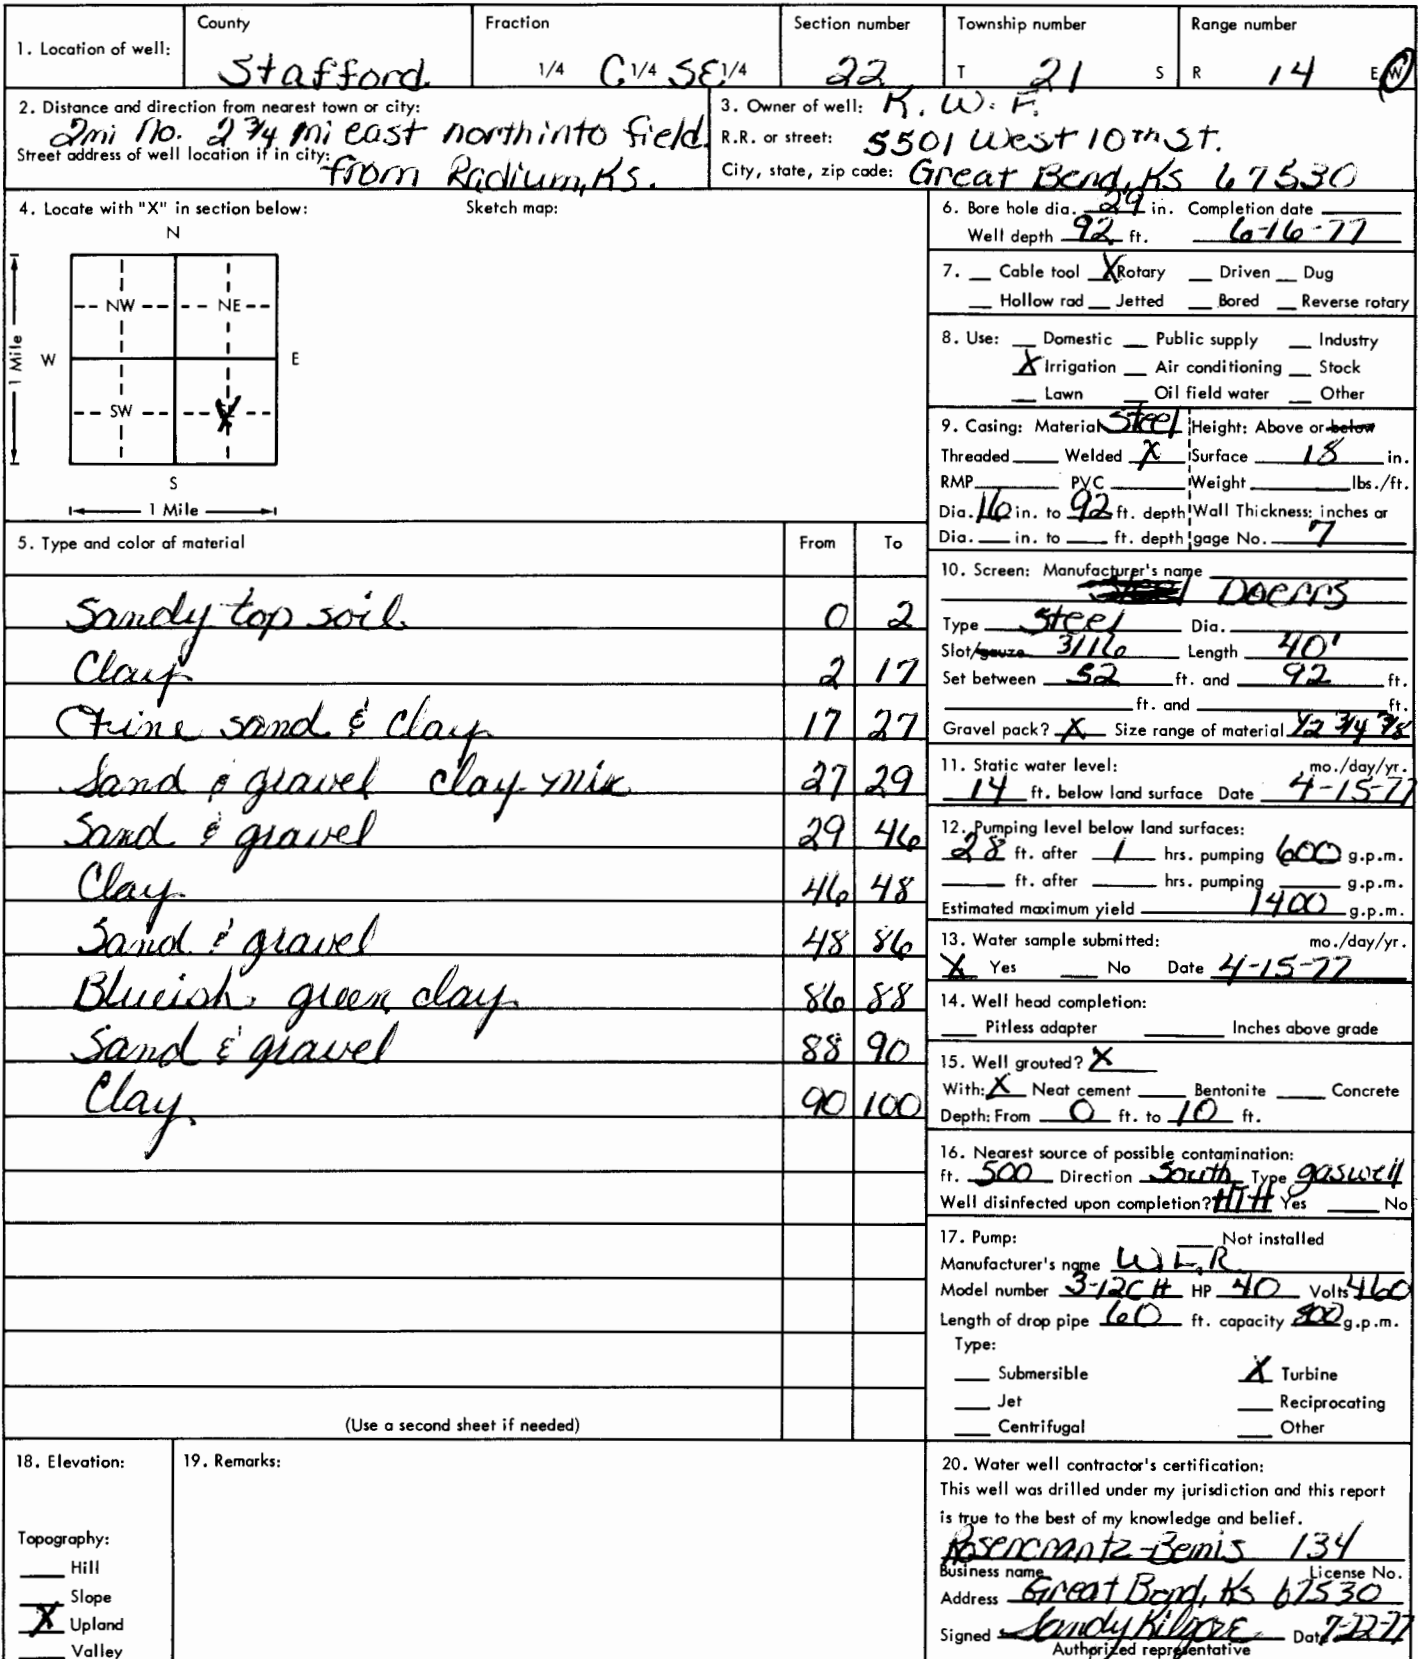 County Fraction Section number Township number Range number
1. Location of well: Stafford 1/4 C 1/4 SE 1/4 22 T 21 S R 14 E W
2. Distance and direction from nearest town or city:
2mi no. 2 3/4 mi east north into field
Street address of well location if in city:
from Radium, Ks.
3. Owner of well: K. W. F.
R.R. or street: 5501 West 10th St.
City, state, zip code: Great Bend, Ks 67530
4. Locate with "X" in section below: Sketch map:
N
NW NE
W E
1 Mile
SW X
S
1 Mile
5. Type and color of material From To
Sandy top soil 0 2
Clay 2 17
Fine sand & clay 17 27
Sand & gravel clay mix 27 29
Sand & gravel 29 46
Clay 46 48
Sand & gravel 48 86
Blueish green clay 86 88
Sand & gravel 88 90
Clay 90 100
(Use a second sheet if needed)
6. Bore hole dia. 29 in. Completion date
Well depth 92 ft. 6-16-77
7. __ Cable tool X Rotary __ Driven __ Dug
__ Hollow rad __ Jetted __ Bored __ Reverse rotary
8. Use: __ Domestic __ Public supply __ Industry
X Irrigation __ Air conditioning __ Stock
__ Lawn __ Oil field water __ Other
9. Casing: Material Steel Height: Above or below
Threaded ____ Welded X Surface 18 in.
RMP ____ PVC ____ Weight ____ lbs./ft.
Dia. 16 in. to 92 ft. depth Wall Thickness: inches or
Dia. ___ in. to ___ ft. depth gage No. 7
10. Screen: Manufacturer's name
Steel Doerrs
Type Steel Dia. ____
Slot/gauze 3/16 Length 40'
Set between 52 ft. and 92 ft.
____ ft. and ____ ft.
Gravel pack? X Size range of material 1/2 3/4 3/8
11. Static water level: mo./day/yr.
14 ft. below land surface Date 4-15-77
12. Pumping level below land surfaces:
28 ft. after 1 hrs. pumping 600 g.p.m.
____ ft. after ____ hrs. pumping ____ g.p.m.
Estimated maximum yield 1400 g.p.m.
13. Water sample submitted: mo./day/yr.
X Yes __ No Date 4-15-77
14. Well head completion:
__ Pitless adapter ____ Inches above grade
15. Well grouted? X
With: X Neat cement ____ Bentonite ____ Concrete
Depth: From 0 ft. to 10 ft.
16. Nearest source of possible contamination:
ft. 500 Direction South Type gaswell
Well disinfected upon completion? HTH Yes ____ No
17. Pump: ____ Not installed
Manufacturer's name
Model number 3-12CH HP 40 Volts 460
Length of drop pipe 60 ft. capacity 800 g.p.m.
Type:
__ Submersible X Turbine
__ Jet __ Reciprocating
__ Centrifugal __ Other
18. Elevation: 19. Remarks:
Topography:
__ Hill
__ Slope
X Upland
__ Valley
20. Water well contractor's certification:
This well was drilled under my jurisdiction and this report
is true to the best of my knowledge and belief.
Rosencrantz-Bemis 134
Business name License No.
Address Great Bend, Ks 67530
Signed Sandy Kilgore Date 7-22-77
Authorized representative